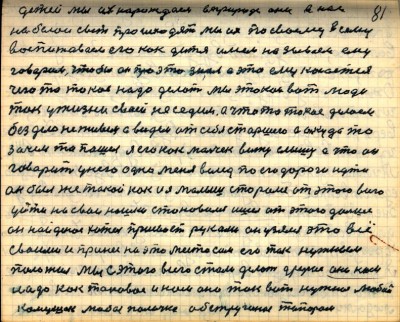 81
детей мы их нарождаем в природе они а как
на белый свет приходят мы их по своему всему
воспитываем его как дитя имем называем ему
говорим, чтобы он про это знал а это ему касается
чего то такое надо делать мы такие вот люди
так у жизни своей не сидим, а что то такое делаем
без дела не живем а видем от себя старшего а откуда то
зачем то я его как мальчик вижу слышу а что он
говорить у него одно меня вслед по его дороге идти
он был же такой как и я малыш старался от этого всего
уйти на свои ножки становился ишел от этого дальше
он найдя хотел привость руками он узялся это всё
своими и принес на это место сам его так нужным
положил мы с этого всего стали делать другие они нам
надо как таковая и нам она так вот нужна любой
камушек любая палочка обструганая топором